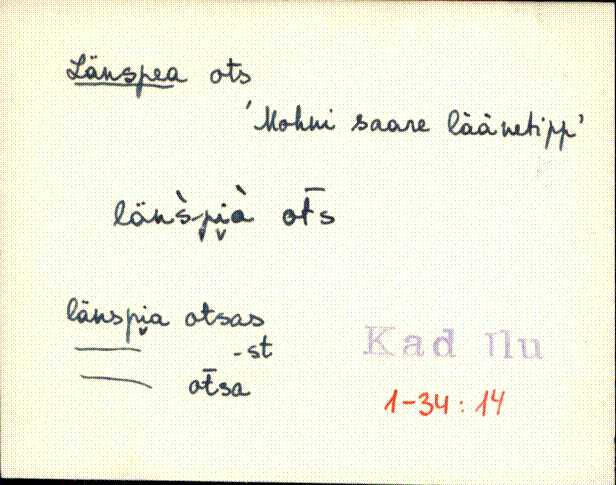 Länspea ots
'Mohni saare läänetipp'
län̄̀s̀-pi̬à ot̄s
länspi̬a otsas
-st
ot̄sa
Kad Ilu
1-34: 14